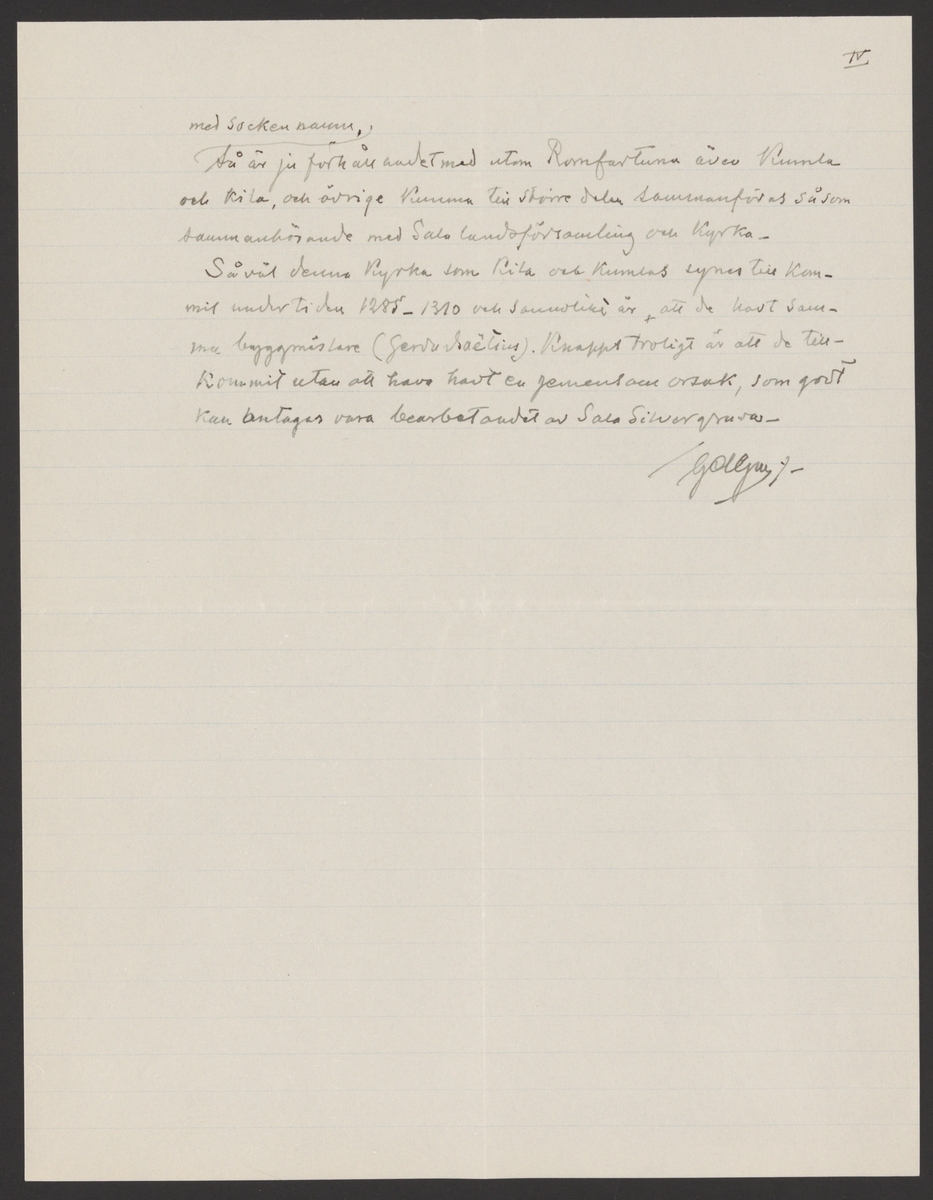 IV
med sockennamn.
Så är ju förhållandet med utom Romfartuna även Kumla
och Kila, och övrige kunna till större delen sammanföras såsom
sammanhörande med Sala landsförsamling och Kyrka –
Såväl denna Kyrka som Kila och Kumlas synes till kom-
mit under tiden 1285 – 1310 och sannolikt är att de havt sam-
ma byggmästare (Gerda Boëtius). Knappt troligt är att de till-
kommit utan att hava havt en gemensam orsak, som godt
kan antagas vara bearbetandet av Sala Silvergruva –